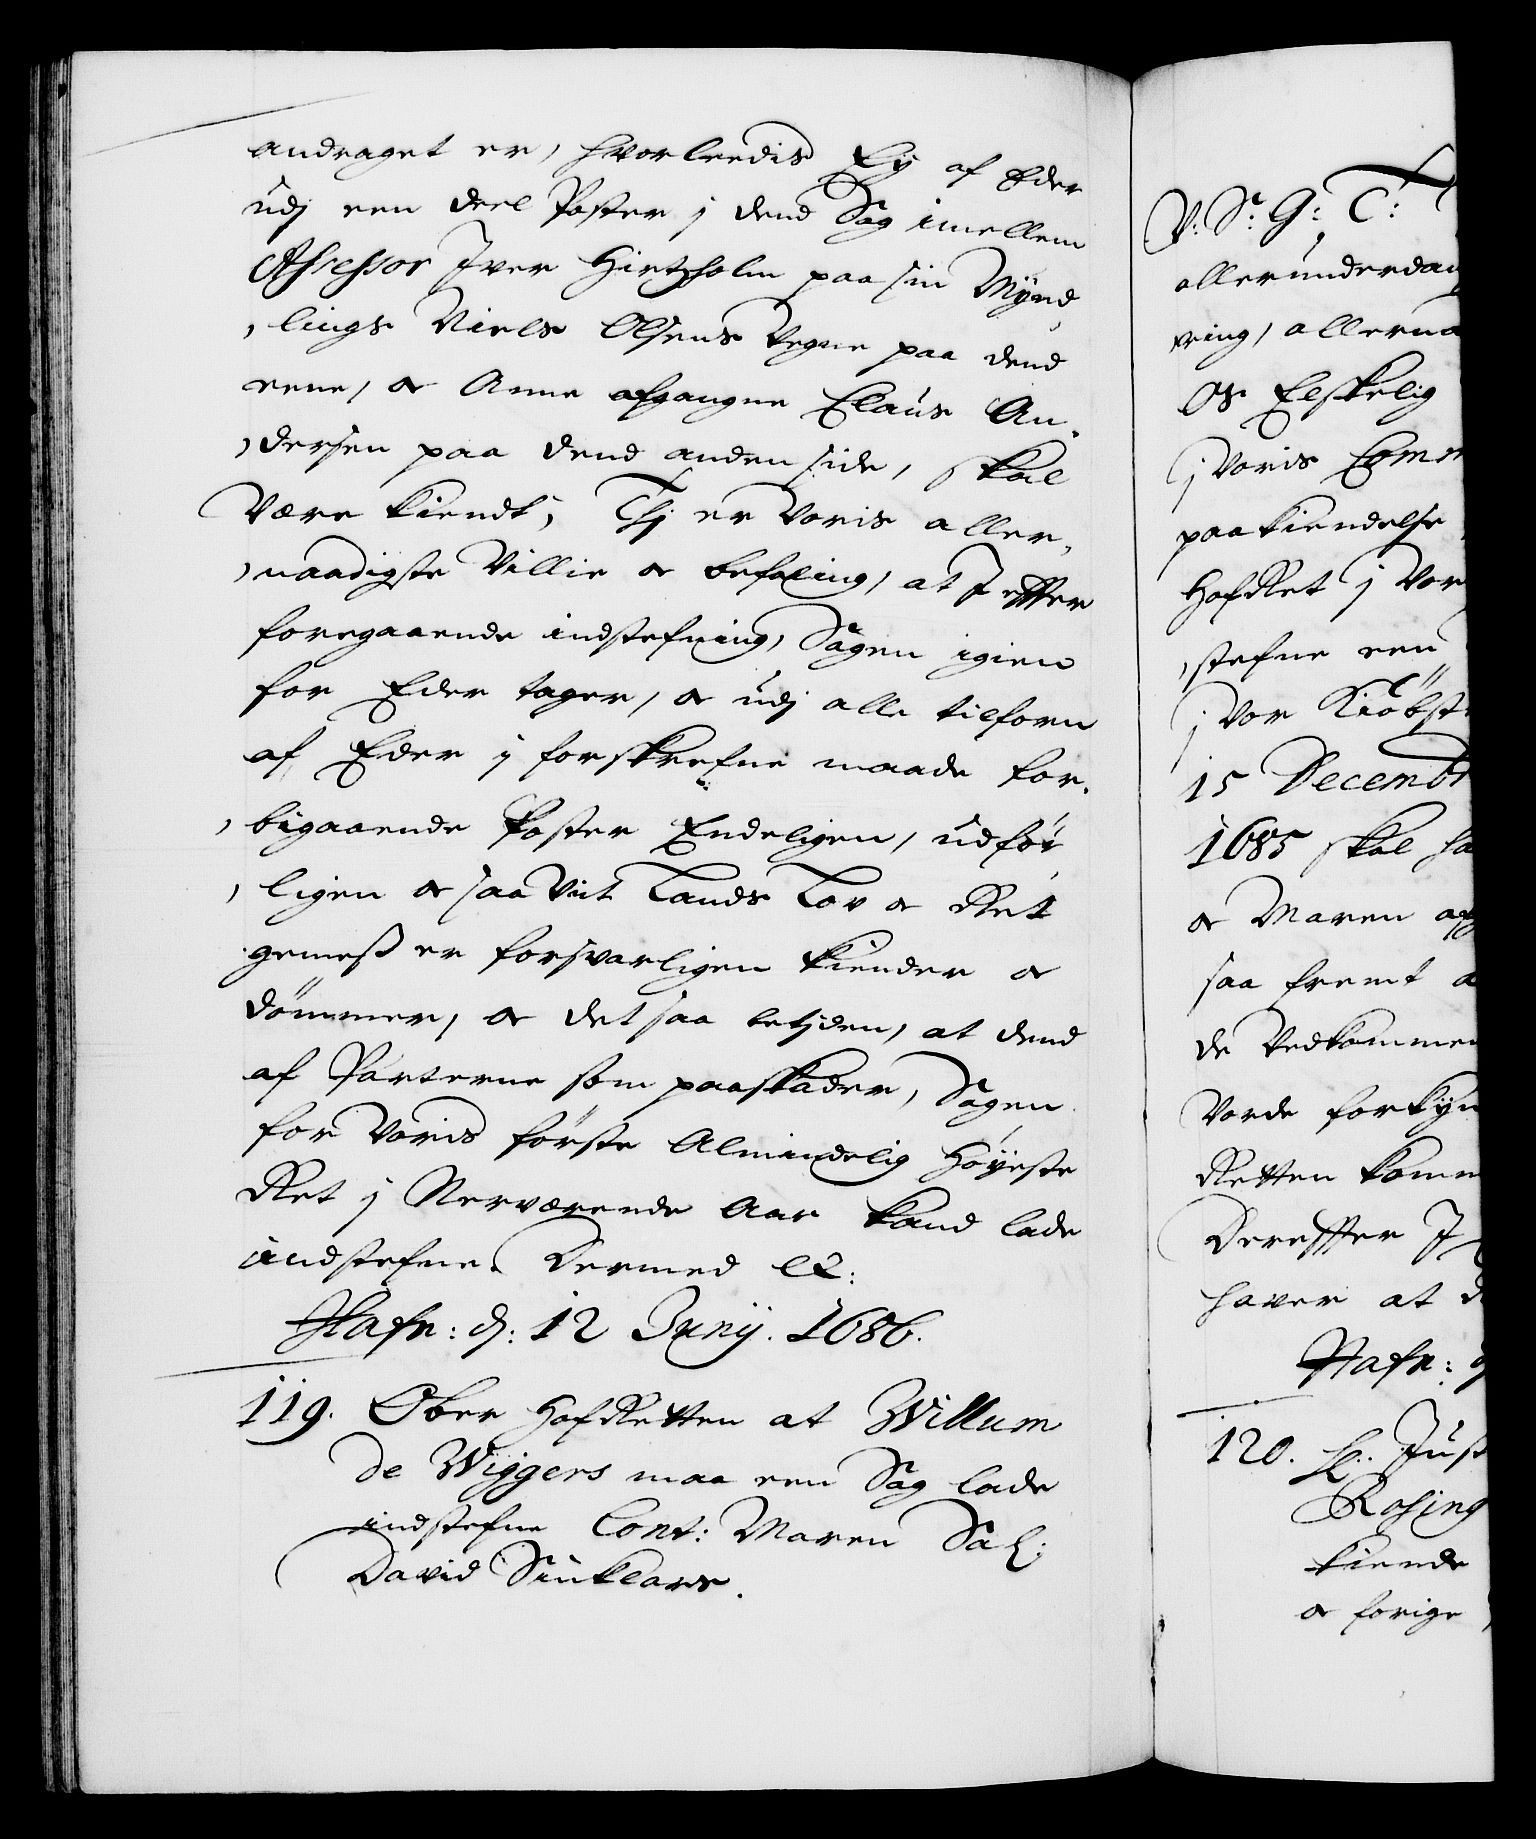 andraget er, hvorleedis Ey af Eder
udj een deel Poster j dend Sag imellem
Assessor Iver Hirtzholm paa sin Mynd
,lings Niels Olsens Vegne paa dend
eene, oc Anne afgangne Claus An,
,dersen paa dend anden side, skal
være kiendt, Thj er Voris aller,
,naadigste Villie oc befaling, at I effter
foregaaende indstefning, Sagen igien
for Eder tager, oc udj alle tilforn
af Eder j forskrefne maade for,
,bigaaende Poster Endeligen, udfør
,ligen oc saa vit Lands Lov oc Ret
gemeß er forsvarligen kiender oc
dømmer, oc det saa betjden, at dend
af Parterne som paaskader, Sagen
for Voris første Almindelig Høyeste
Ret j Nerværende Aar kand lade
indstefne. Dermed etc:
Hafn: d: 12 Junij. 1686.
119. Ober HofRetten at Willum
de Wiggers maa een Sag lade
indstefne Cont: Maren Sal:
David Sinklars.
V: Sr: G: T:
allerunderdan
ring, allerna
Os Elskelig
j Voris Comm
paakiendelse
HofRet j Vor
,stefne een
j Vor Kiøbst
15 Decembr
1685 skal ha
oc Maren afg
saa fremt a
de Vedkommen
Vorde forkyn
Retten komm
Dereffter I
haver at d
Hafn: d
120. H: Just
Rosing
kiende
oc forige